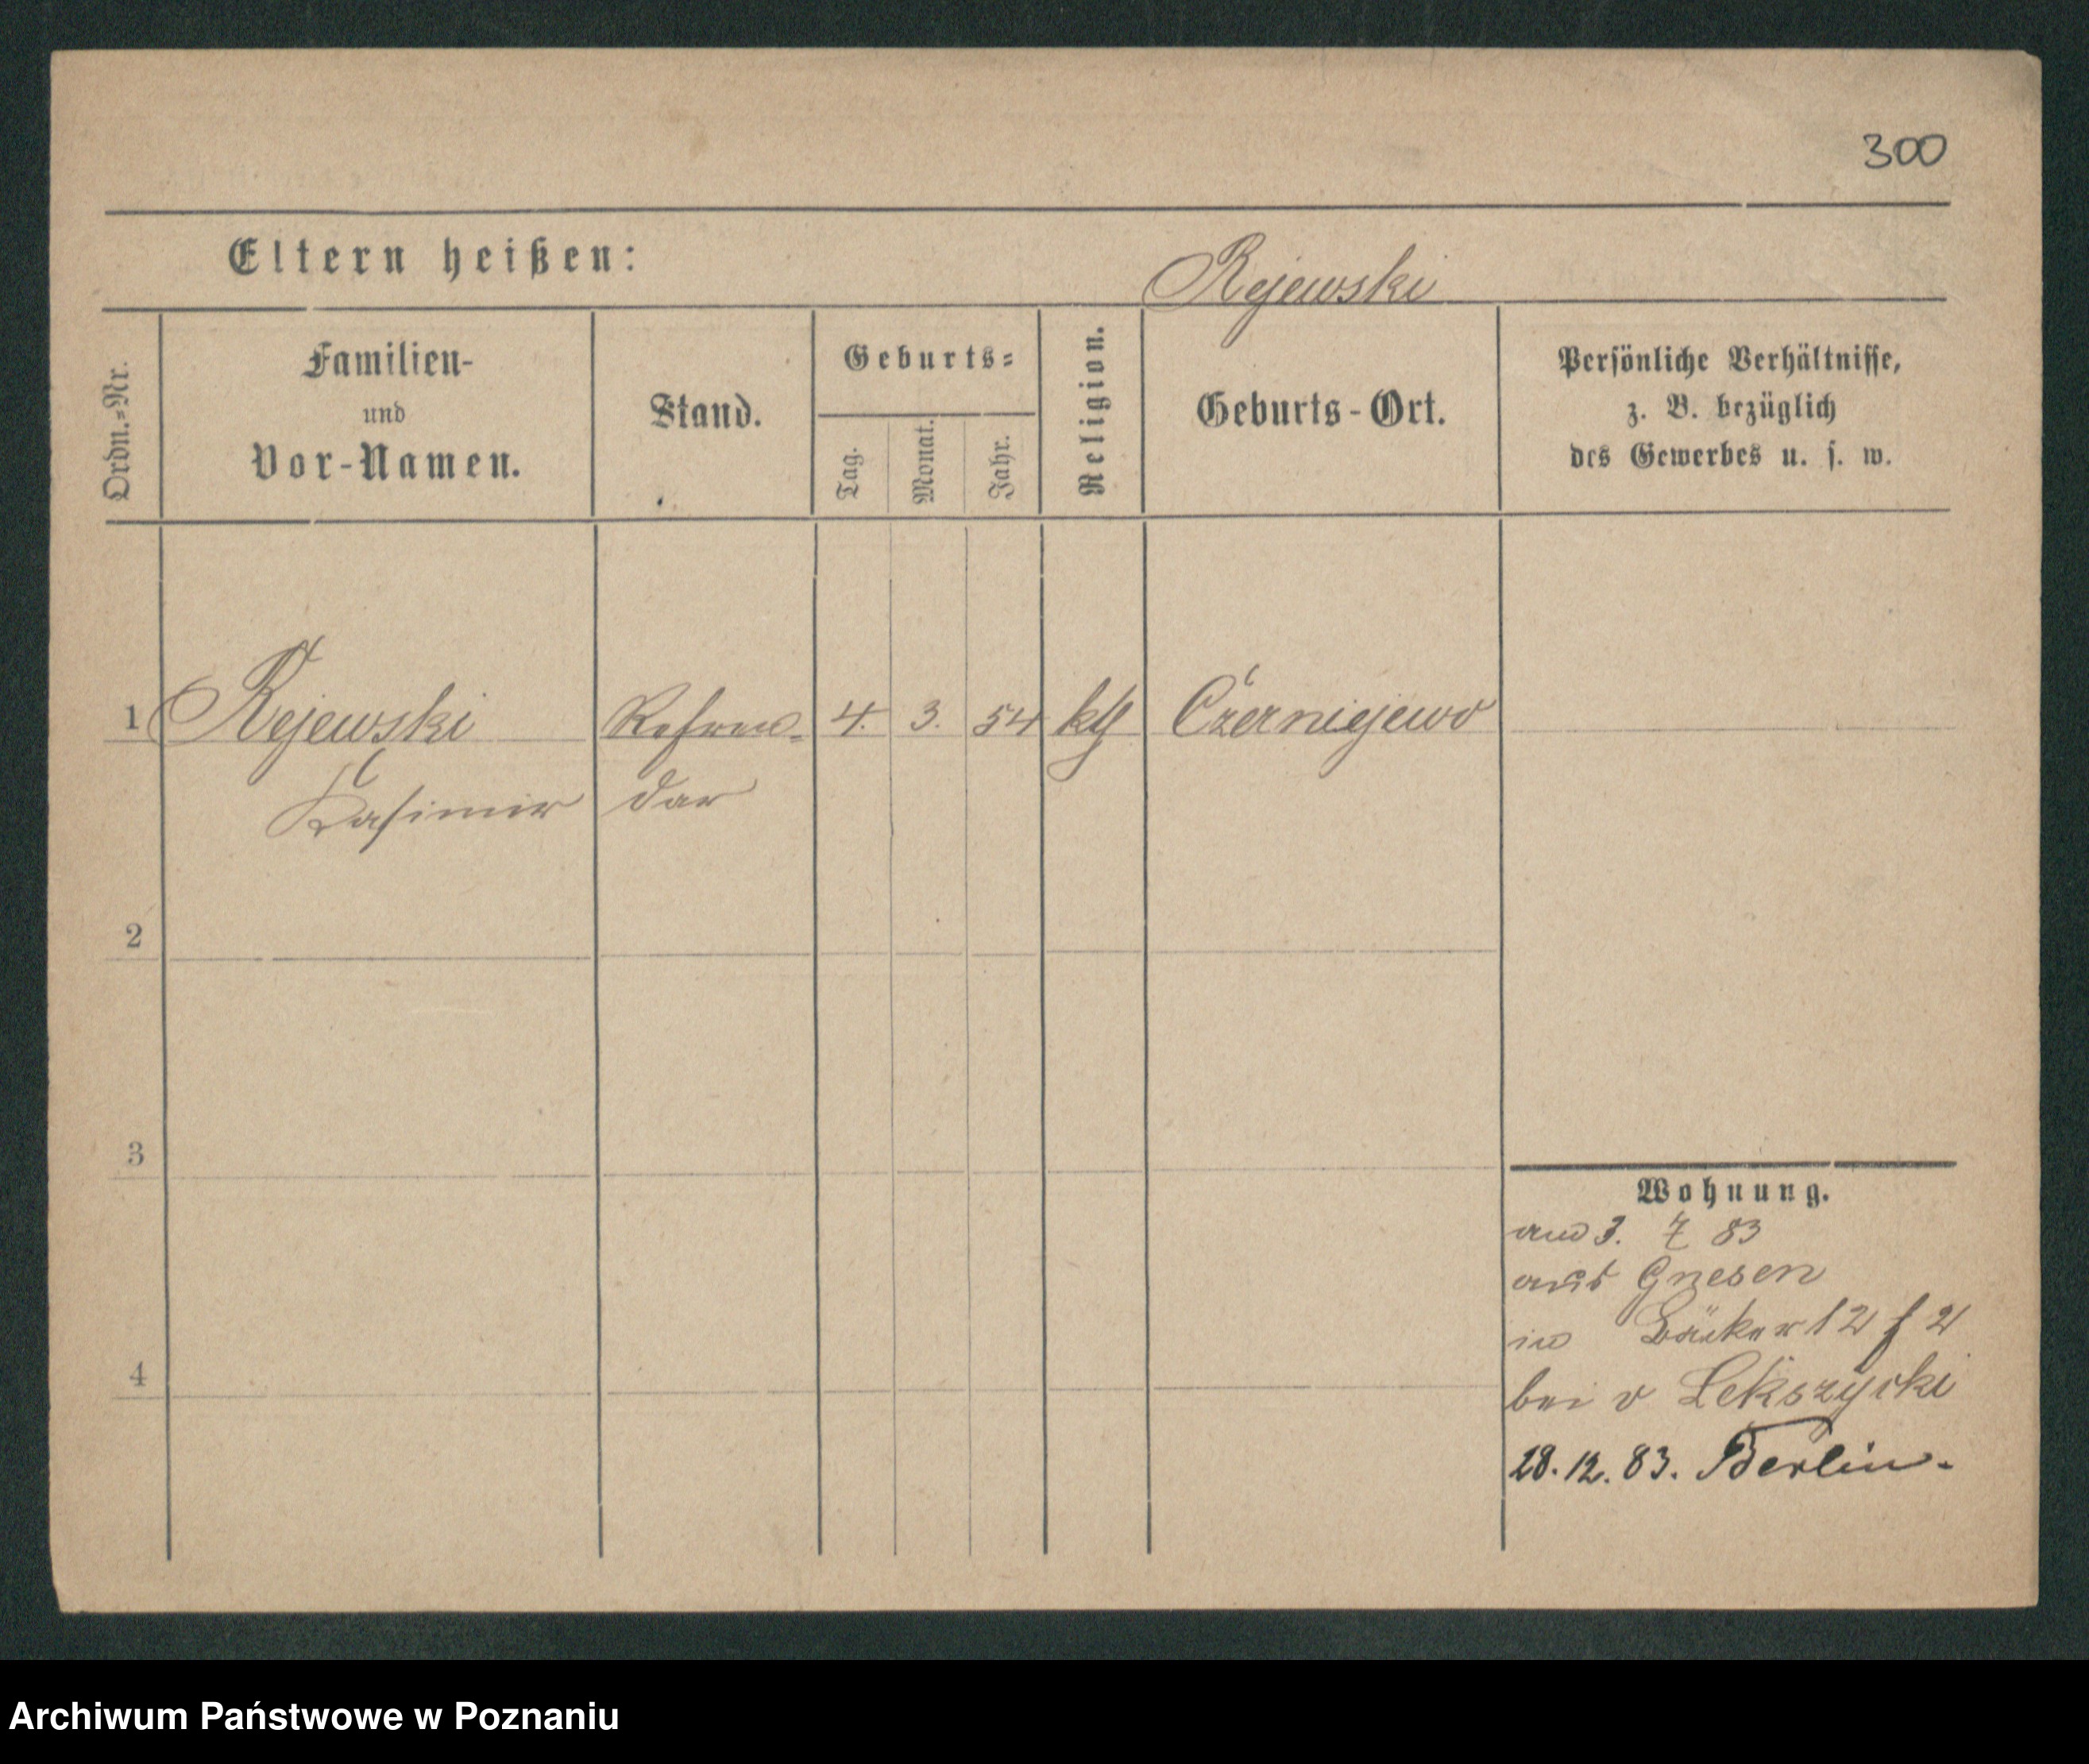 300
Eltern heißen:
Rejewski
Ordn.=Nr.
Familien-
und
Vor-Namen.
Stand.
Geburts=
Tag.
Monat.
Jahr.
Religion.
Geburts-Ort.
Persönliche Verhältnisse,
z. B. bezüglich
des Gewerbes u. s. w.
1 Rejewski Referen= 4. 3. 54 kth Czerniejewo
Kasimir dar
2
3
4
Wohnung.
am 3. 7 83
aus Gnesen
in Bäcker 12 f 2
bei v Lekszycki
28. 12. 83. Berlin.
Archiwum Państwowe w Poznaniu